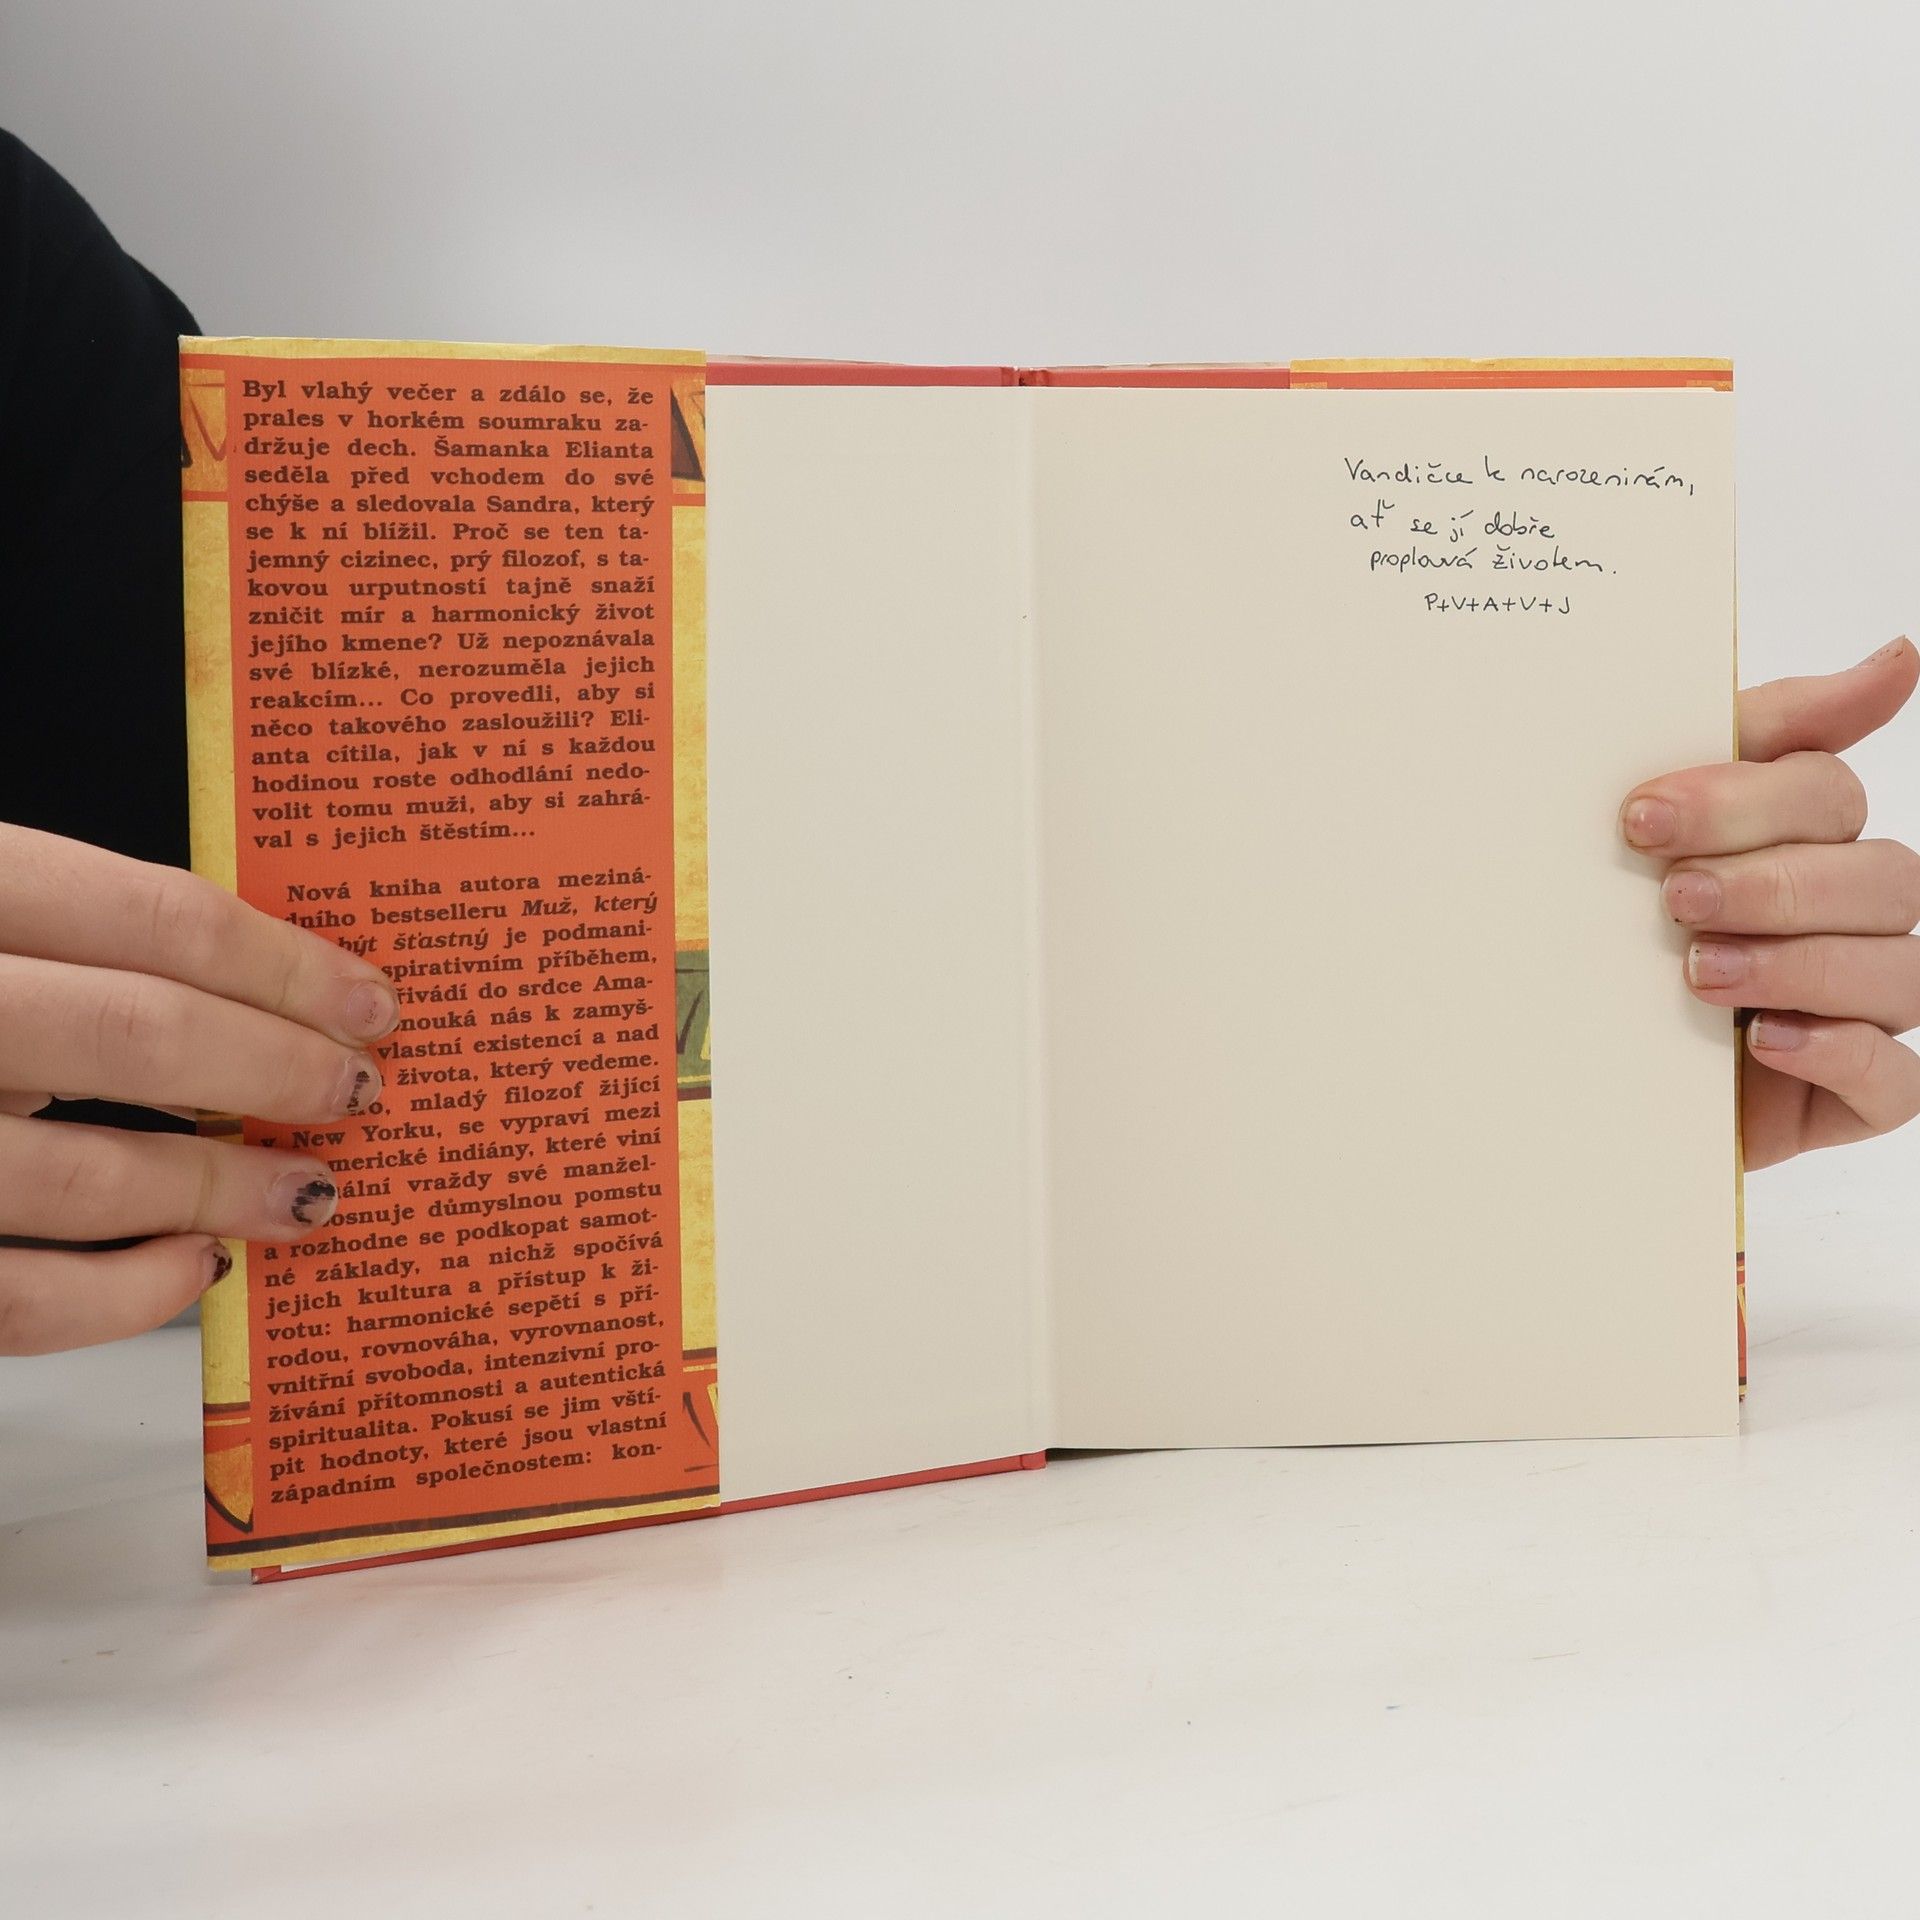 Byl vlahý večer a zdálo se, že
prales v horkém soumraku za-
držuje dech. Šamanka Elianta
seděla před vchodem do své
chýše a sledovala Sandra, který
se k ní blížil. Proč se ten ta-
jemný cizinec, prý filozof, s ta-
kovou urputností tajně snaží
zničit mír a harmonický život
jejího kmene? Už nepoznávala
své blízké, nerozuměla jejich
reakcím... Co provedli, aby si
něco takového zasloužili? Eli-
anta cítila, jak v ní s každou
hodinou roste odhodlání nedo-
volit tomu muži, aby si zahrá-
val s jejich štěstím...
Nová kniha autora meziná-
dního bestselleru Muž, který
být šťastný je podmani-
spirativním příběhem,
řivádí do srdce Ama-
onouká nás k zamyš-
vlastní existencí a nad
života, který vedeme.
ro, mladý filozof žijící
v New Yorku, se vypraví mezi
merické indiány, které viní
ální vraždy své manžel-
osnuje důmyslnou pomstu
a rozhodne se podkopat samot-
né základy, na nichž spočívá
jejich kultura a přístup k ži-
votu: harmonické sepětí s pří-
rodou, rovnováha, vyrovnanost,
vnitřní svoboda, intenzivní pro-
žívání přítomnosti a autentická
spiritualita. Pokusí se jim vští-
pit hodnoty, které jsou vlastní
západním společnostem: kon-
Vandičce k narozeninám,
ať se jí dobře
proplouvá životem.
P+V+A+V+J